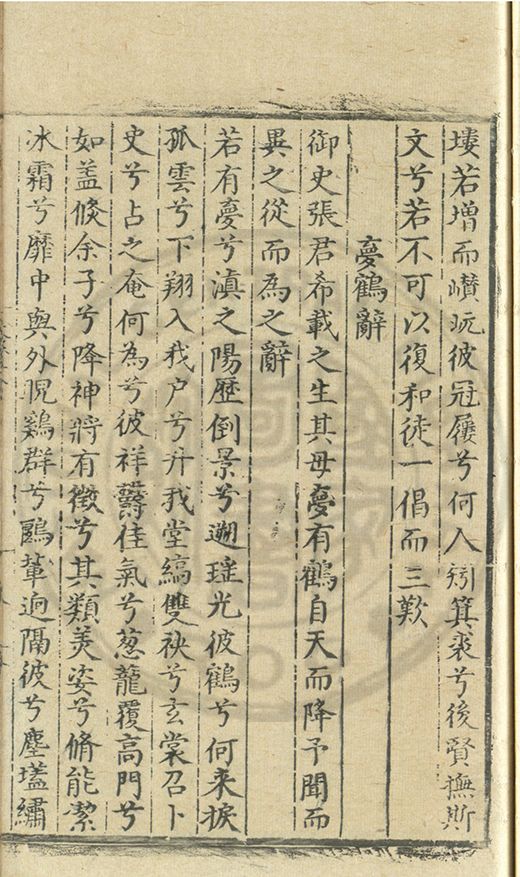 塿若增而巑岏彼冠屨兮何人紹箕裘兮後賢撫斯
文兮若不可以復和徒一倡而三歎
夢鶴辭
御史張君希載之生其母夢有鶴自天而降予聞而
異之從而為之辭
若有夢兮滇之陽歷倒景兮遡瑤光彼鶴兮何来捩
孤雲兮下翔入我户兮升我堂縞雙袂兮玄裳召卜
史兮占之奄何為兮彼祥欝佳氣兮葱蘢覆高門兮
如盖倐余子兮降神將有徵兮其類羙姿兮脩能潔
冰霜兮靡中與外睨鷄群兮鷃輩逈隔彼兮塵壒繡